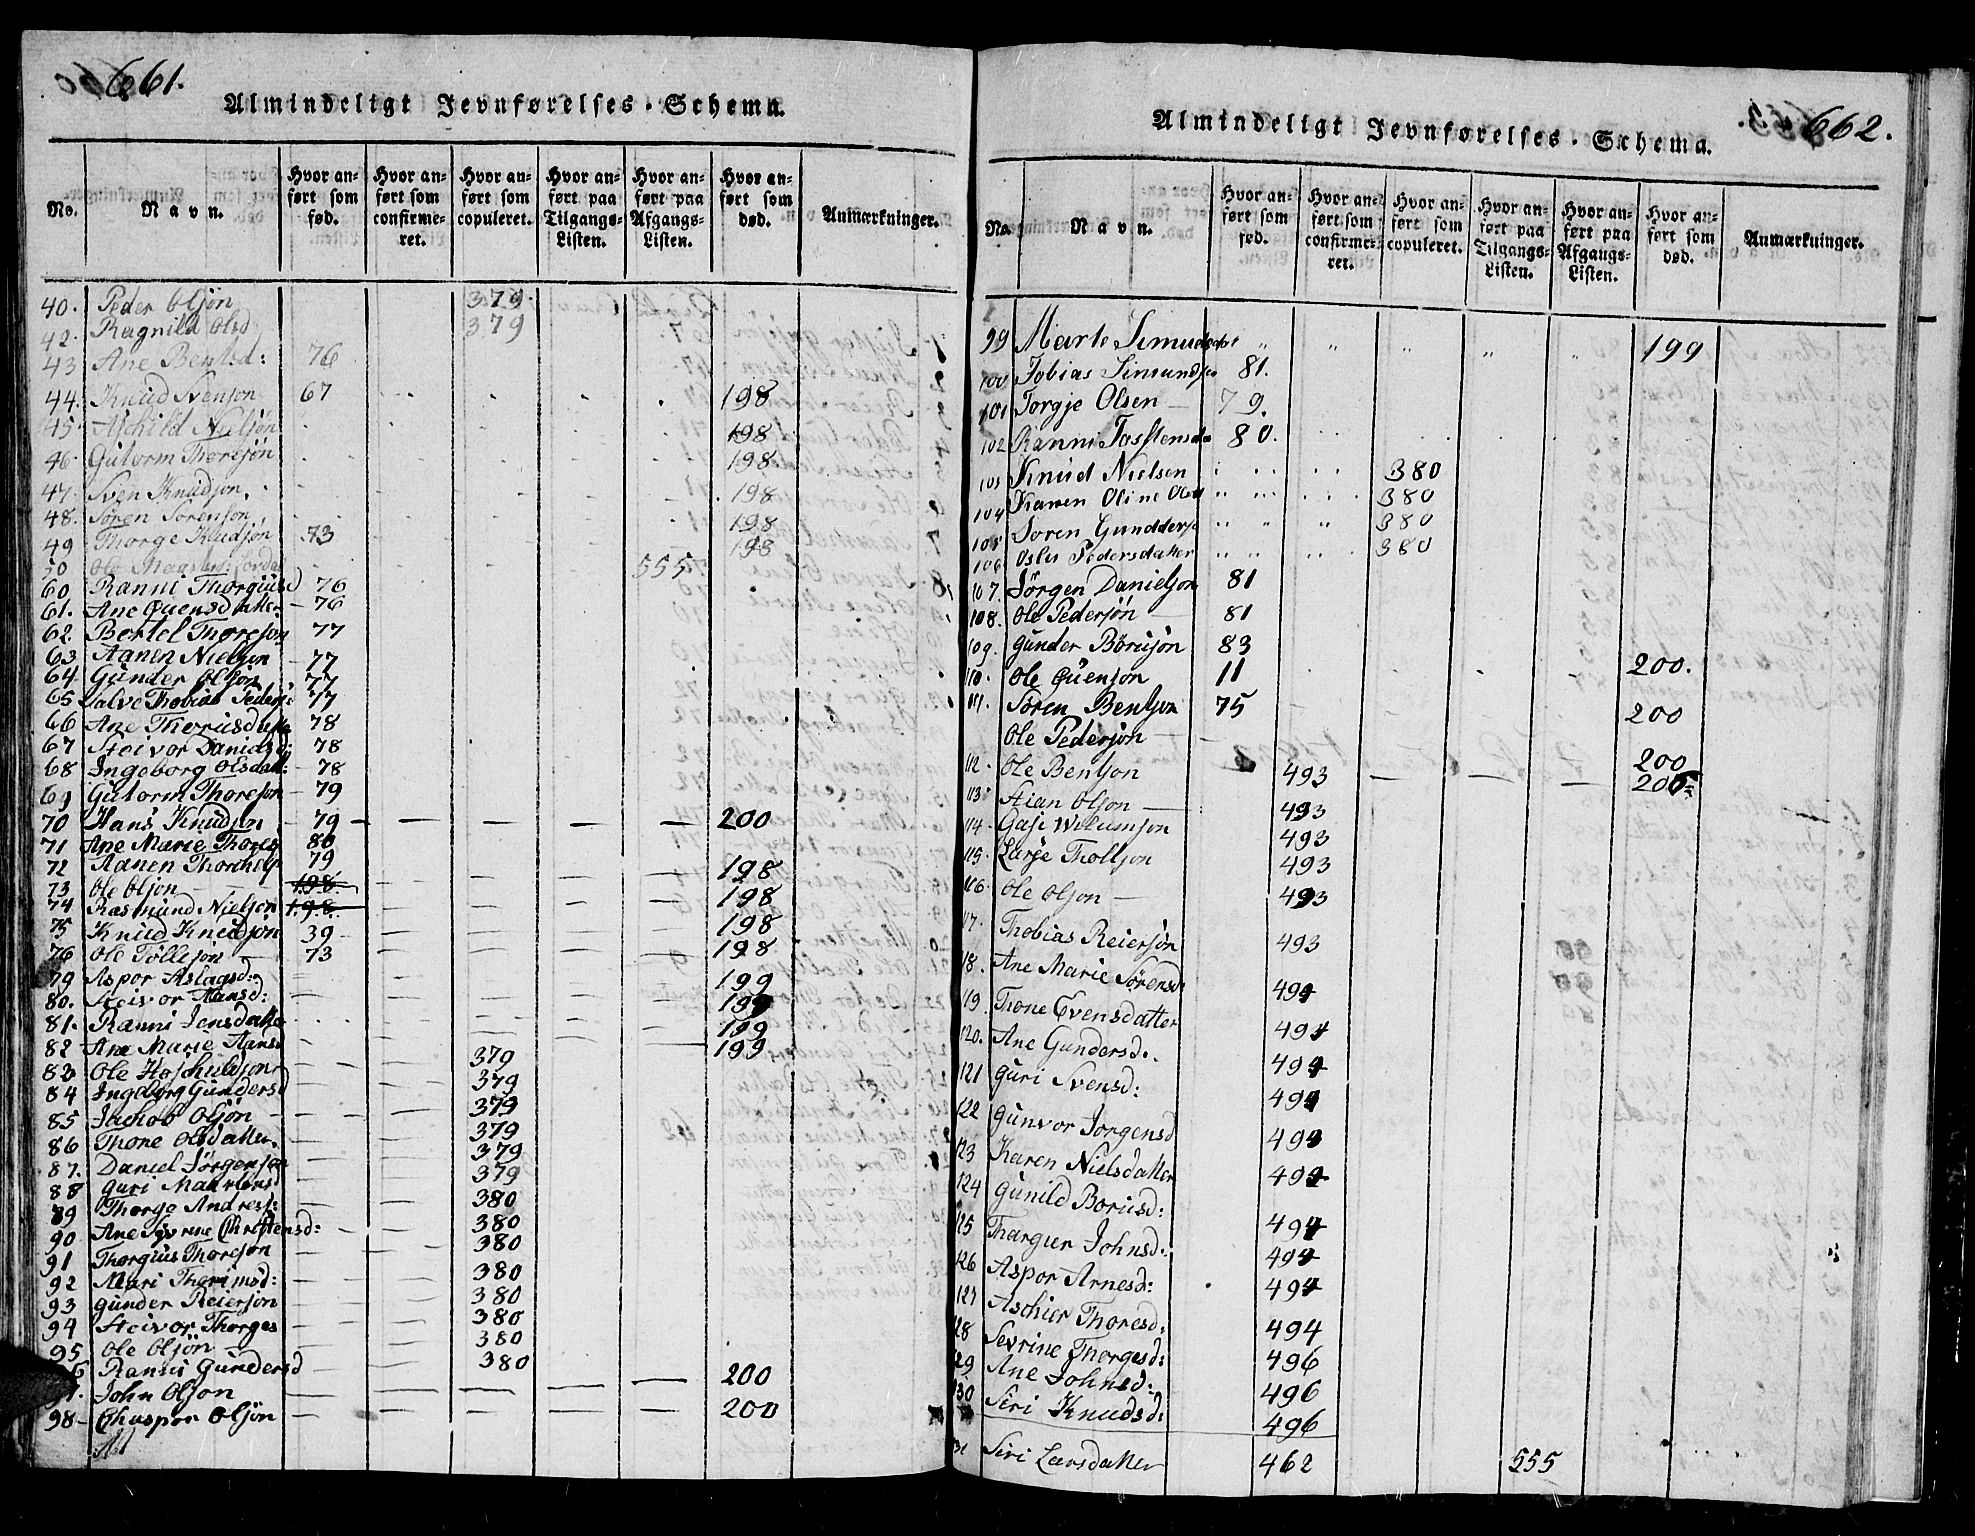 661.
Almindeligt Jevnførelses-Schema.
No. Navn. Hvor anført som fød. Hvor anført som confirmeret. Hvor anført som copuleret. Hvor anført paa Tilgangs-Listen. Hvor anført paa Afgangs-Listen. Hvor anført som død. Anmærkninger.
40. Peder Olsøn 379.
42. Ragnild Olsd 379
43 Ane Bentsd: 76
44. Knud Svensøn 67 198
45. Aschild Nielsøn 198
46. Gutorm Thoresøn 198
47. Sven Knudsøn. 198
48. Søren Sørensøn 198
49 Thorge Knudsøn 73 198
50 Ole 555
60. Ranni Thorgiusd 76
61. Ane Quensdatter 76
62. Bertel Thoresøn 77
63 Aanen Nielsøn 77
64. Gunder Olsøn 77
65 Salve Thobias Peders: 77
66 Ane Thoriusdatter 78
67 Steivor Danielsd: 78
68 Ingeborg Olsdatt: 78
69 Gutorm Thoresøn 79
70 Hans Knudsen 79 200
71 Ane Marie Thoresd 80
72 Aanen 79 198
73 Ole Olsøn 198. 198
74 Rasmund Nielsøn 198. 198
75 Knud Knudsøn 39 198
76 Ole Tollesøn 73
79 Aspor Aslagsd: 199
80. Steivor Hansd: 199
81. Ranni Jensdatter 199
82 Ane Marie Hansd 199
83 Ole 379
84 Ingeborg Gundersd 379
85 Jachob Olsøn 379
86 Thone Olsdatter. 379
87. Daniel Jørgensøn 379
88 Guri Maartensd 379
89 Thorge Andres: 380
90 Ane Syvrine Christensd: 380
91 Thorgius Thoresøn 380
92 Mari Thorimsd: 380
93 Gunder Reiersøn 380
94 Steivor Thorges 380
95 Ole Olsøn 380
96 Ranni Gundersd 380
97. John Olsøn 200
98 Chaspor Olsøn 200
662.
Almindeligt Jevnførelses-Schema.
No. Navn. Hvor anført som fød. Hvor anført som confirmeret. Hvor anført som copuleret. Hvor anført paa Tilgangs-Listen. Hvor anført paa Afgangs-Listen. Hvor anført som død. Anmærkninger.
99 Marte Simundsdat 199
100 Tobias Simundsen 81.
101 Torgje Olsen 79.
102 Ranni 80.
103 Knud Nielsen 380
104 Karen Oline Olsd 380
105 Søren Gunddersen 380
106 Oslu Pedersdatter 380
107. Jørgen Danielsøn 81
108. Ole Pedersøn 81
109. Gunder Børiusøn 83
110. Ole Quensøn 11 200.
111. Søren Bentsøn 75 200
Ole Pedersøn 200
112. Ole Bentsøn 493 200
113 Stian Olsøn 493
114 493
115. Tholtsøn 493
116. Ole Olsøn 493
117. Thobias Reiersøn 493
18. Ane Marie Sørensd: 494
119. Thone Evensdatter 494
120. Ane Gundersd: 494
121 Guri Svensd: 494
122 Gunvor Jorgensd 494
123 Karen Nielsdatter 494
124 Gunild Boriusd: 494
125 Thargun Johnsd: 494
126 Aspor Arnesd: 494
127 Aschier Thoresd: 494
128 Sevrine Thorgesd: 496
129 Ane Johnsd: 496
130 Siri Knudsd: 496
31 Siri Larsdatter 462 555